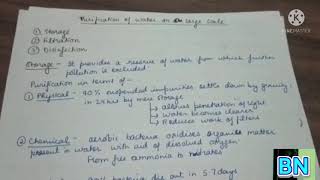 Purification of water on a large scale
① Storage
② Filtration
③ Disinfection
Storage - It provides a reserve of water from which further
pollution is excluded.
Purification in terms of -
① Physical - 90% suspended impurities settle down by gravity
in 24 hrs by mere storage
→ allows penetration of light
→ Water becomes clearer
→ Reduces work of filters
② Chemical - aerobic bacteria oxidises organic matter
present in water with aid of dissolved oxygen.
From free ammonia to nitrates
bacteria die out in 5-7 days
KINEMASTER
BN